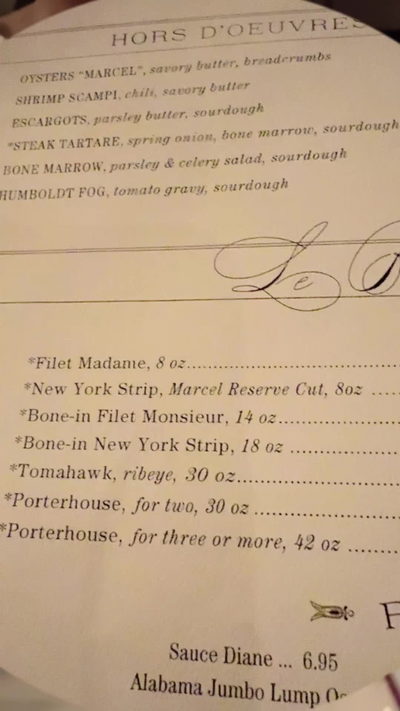 HORS D'OEUVRES
OYSTERS "MARCEL", savory butter, breadcrumbs
SHRIMP SCAMPI, chili, savory butter
ESCARGOTS, parsley butter, sourdough
*STEAK TARTARE, spring onion, bone marrow, sourdough
BONE MARROW, parsley & celery salad, sourdough
HUMBOLDT FOG, tomato gravy, sourdough
Le
*Filet Madame, 8 oz
*New York Strip, Marcel Reserve Cut, 8oz
*Bone-in Filet Monsieur, 14 oz
*Bone-in New York Strip, 18 oz
*Tomahawk, ribeye, 30 oz
*Porterhouse, for two, 30 oz
*Porterhouse, for three or more, 42 oz
Sauce Diane ... 6.95
Alabama Jumbo Lump